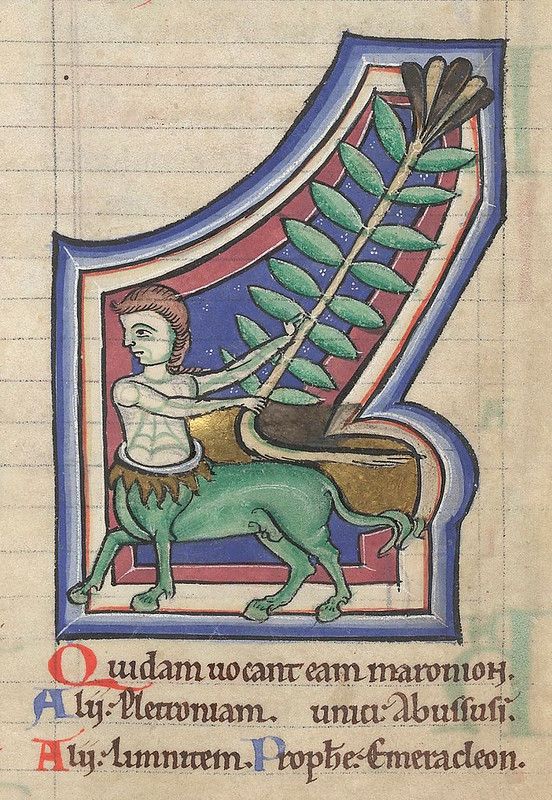 Quidam uocant eam maronion.
Alij: Plectoniam. unici: Abussusi.
Alij: limnitem. Prophe: Emeracleon.